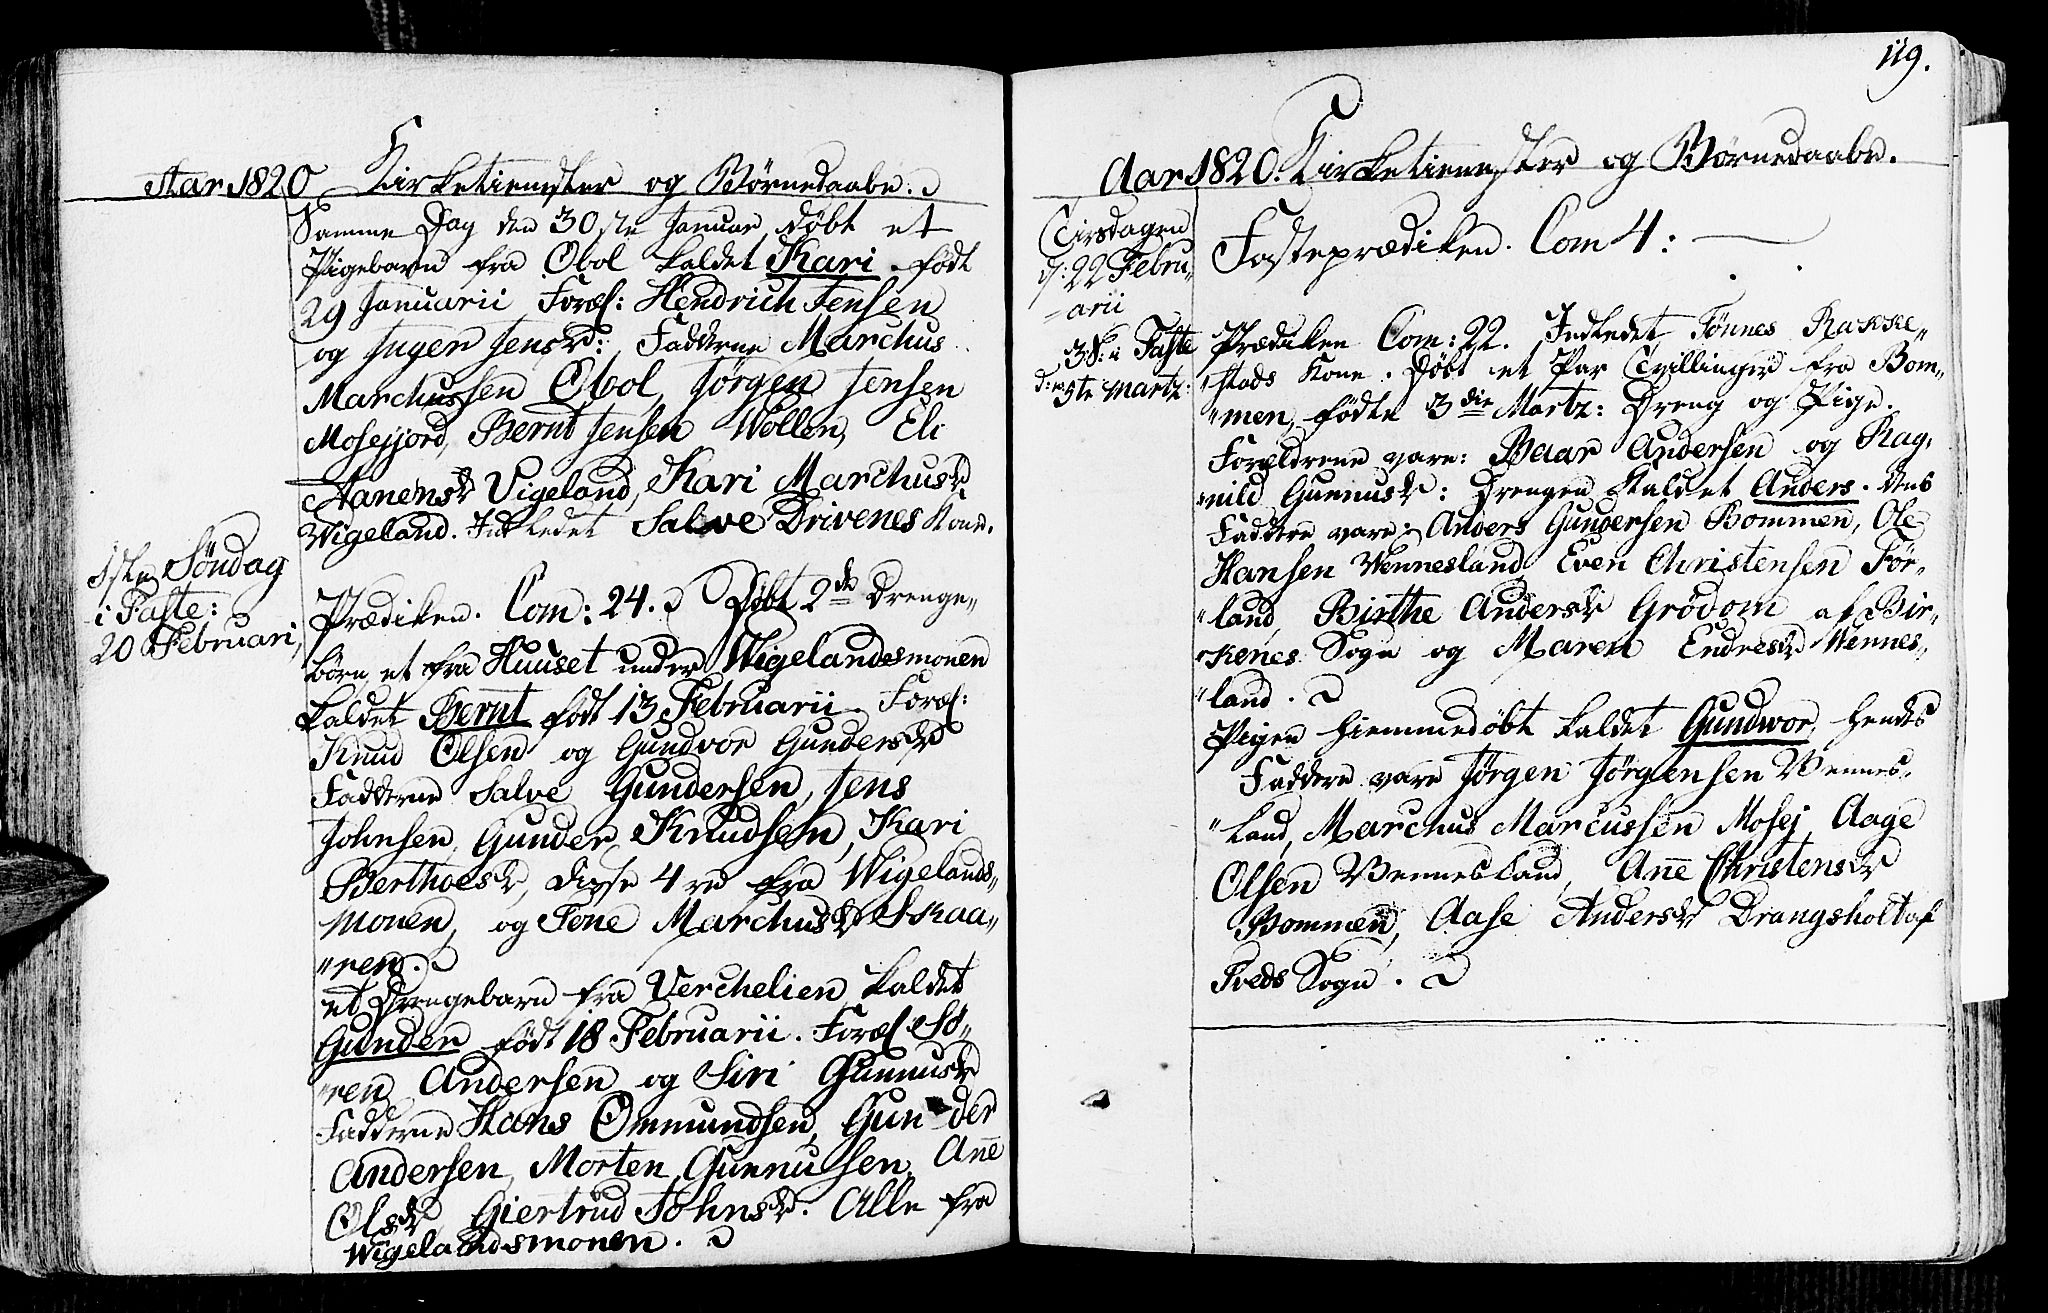 Aar 1820 Kirketienester og Börnedaabe.
Samme Dag den 30ste Januar döbt et
Pigebarn fra Obol kaldet Kari. födt
29 Januarii Foræl: Hendrich Jensen
og Inger Jensdr: Fadderne Marchus
Marchussen Obol, Jörgen Jensen
Mosejjord, Bernt Jensen Wollen, Eli
Aanensdr Vigeland, Kari Marchusdr
Wigeland. Indledet Salve Drivenes Kone.
1ste Söndag
i Faste:
20 Februari,
Prædiken. Com: 24. Döbt 2de Drenge„
börn, et fra Huuset under Wigelandsmonen
kaldet Bernt födt 13 Februarii. Foræl:
Knud Olsen og Gundvor Gundersdr
Fadderne Salve Gundersen, Jens
Johnsen, Gunder Knudsen, Kari
Berthoesdr, disse 4re fra Wigelands„
monen, og Tone Marchusdr Skaa„
„ren.
et Drengebarn fra Verchelien kaldet
Gunder födt 18 Februarii. Foræl Sö„
„ren Andersen og Siri Gunnusdr
Fadderne Hans Ommundsen, Gunder
Andersen, Morten Gunnusen, Ane
Olsdr, Giertrud Johnsdr. Alle fra
Wigelandsmonen.
119.
Aar 1820. Kirketienester og Börnedaabe.
Tirsdagen
d: 22 Febru„
„arii
Fasteprædiken. Com 4:
3 S: i Faste
d: 5te Martz:
Prædiken Com: 22. Indledet Tönnes Rakke„
„stads Kone. Döbt et Par Tvillinger fra Bom„
„men, födte 3die Martz: Dreng og Pige.
Forældrene vare: Baar Andersen og Rag„
„nild Gunnusdr: Drengen kaldet Anders. dens
Faddere vare: Anders Gundersen Bommen, Ole
Hansen Vennesland, Even Christensen För„
„land, Birthe Andersdr Grödom af Bir„
„kenes Sogn og Maren Endresdr Vennes„
„land.
Pigen hiemmedöbt kaldet Gundwor, hendes
Faddere vare Jörgen Jörgensen Vennes„
„land, Marchus Marcussen Mosej, Aage
Olsen Vennesland, Ane Christensdr
Bommen, Aase Andersdr Drangsholt af
Tveds Sogn.